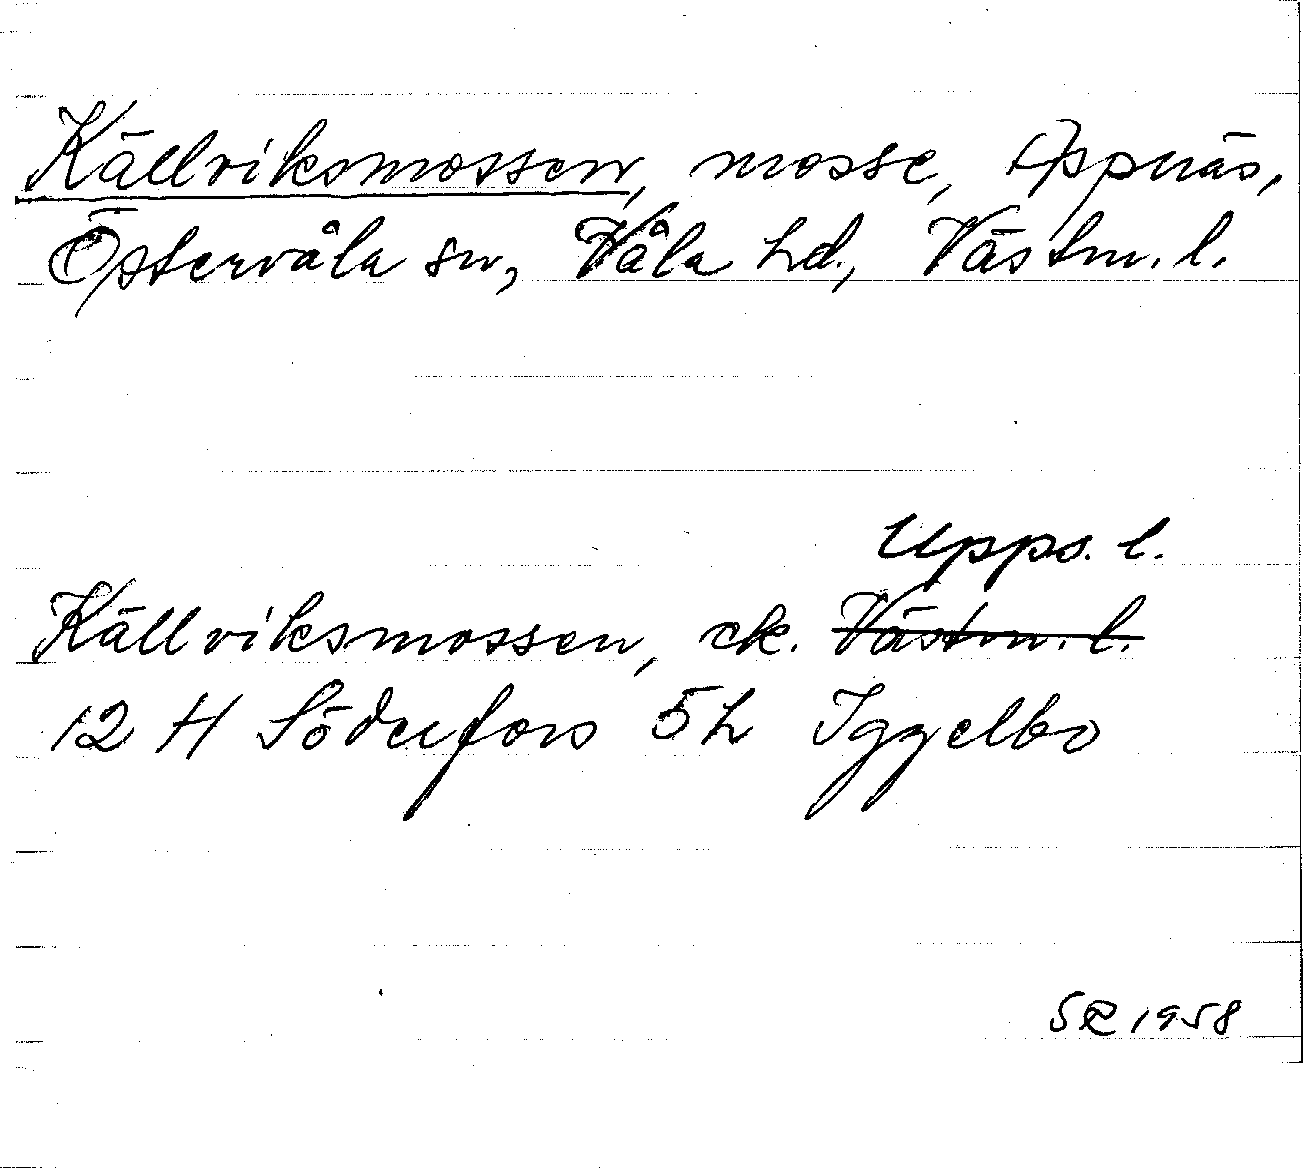 Källviksmossen, mosse, Åppnäs,
Östervåla sn, Våla hd., Västm. l.
Upps. l.
Källviksmossen, ek. Västm. l.
12 H Söderfors 5h Iggelbo
SR 1958